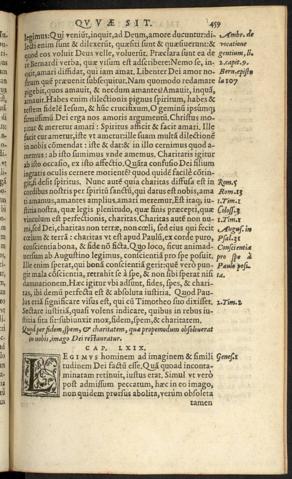 QVVÆ SIT. 459
legimus: Qui veniūt, inquit, ad Deum, amore ducuntur: di-
ledi enim sunt & dilexerūt, quæsiti sunt & quæsiuerunt: &
quod eos voluit Deus velle, voluerūt. Præclara sunt ea de
re Bernardi verba, quæ visum est adscribere: Nemo se, in-
quit, amari diffidat, qui iam amat. Libenter Dei amor no-
strum quē præuenit subsequitur. Nam quomodo redamare
pigebit, quos amauit, & necdum amantes? Amauit, inquā,
amauit. Habes enim dilectionis pignus spiritum, habes &
testem fidelē Iesum, & hūc crucifixum. O geminū ipsumq́;
firmissimū Dei erga nos amoris argumentū. Christus mo-
ritur & meretur amari: Spiritus afficit & facit amari. Ille
facit cur ametur, iste vt ametur: ille suam multā dilectionē
in nobis cōmendat: iste & dat: & in illo cernimus quod a-
memus: ab isto sumimus vnde amemus. Charitatis igitur
ab illo occasio, ex isto affectio. Quāta confusio Dei filium
ingratis oculis cernere morientē? quod quidē facilē cōtin-
git, si desit spiritus. Nunc autē quia charitas diffusa est in
cordibus nostris per spiritū sanctū, qui datus est nobis, ama
ti amamus, amantes amplius, amari meremur. Est itaq; iu-
stitia nostra, quæ legis plenitudo, quæ finis præcepti, quæ
vinculum est perfectionis, charitas. Charitas autē non nu-
mi, sed Dei, charitas non terræ, non cœli, sed eius qui fecit
cœlum & terrā: charitas vt est apud Paulū, ex corde puro,
conscientia bona, & fide nō ficta. Quo loco, sicut animad-
uersum ab Augustino legimus, conscientiā pro spe posuit.
Ille enim sperat, qui bonā conscientiā gerit: quē verò pun-
git mala cōscientia, retrahit se à spe, & non sibi sperat nisi
damnationem. Hæc igitur vbi adsunt, fides, spes, & chari-
tas, ibi demū perfecta est & absoluta iustitia. Quod Pau-
lus etiā significare visus est, qui cū Timotheo suo dixisset,
Sectare iustitiā, quasi volens indicare, quibus in rebus iu-
stitia sita sit: subiunxit mox, fidem, spem, & charitatem.
Quòd per fidem, spem, & charitatem, quæ propemodum obsoluerat
in nobis, imago Dei restauratur.
CAP. LXIX.
LEGIMVS hominem ad imaginem & simili
tudinem Dei factū esse. Quā quoad inconta-
minatam retinuit, iustus erat. Simul vt verò
post admissum peccatum, hæc in eo imago,
non quidem prorsus abolita, verùm obsoleta
tamen
Ambr. de
vocatione
gentium, li.
2. capit. 9.
Bern. episto
la 107
Rom. 5
Rom. 13
1. Tim. 1
Coloss. 3
1. Tim. 1
August. in
Psal. 31
Conscientiā
pro spe à
Paulo posi.
1. Tim. 2
Genes. 1